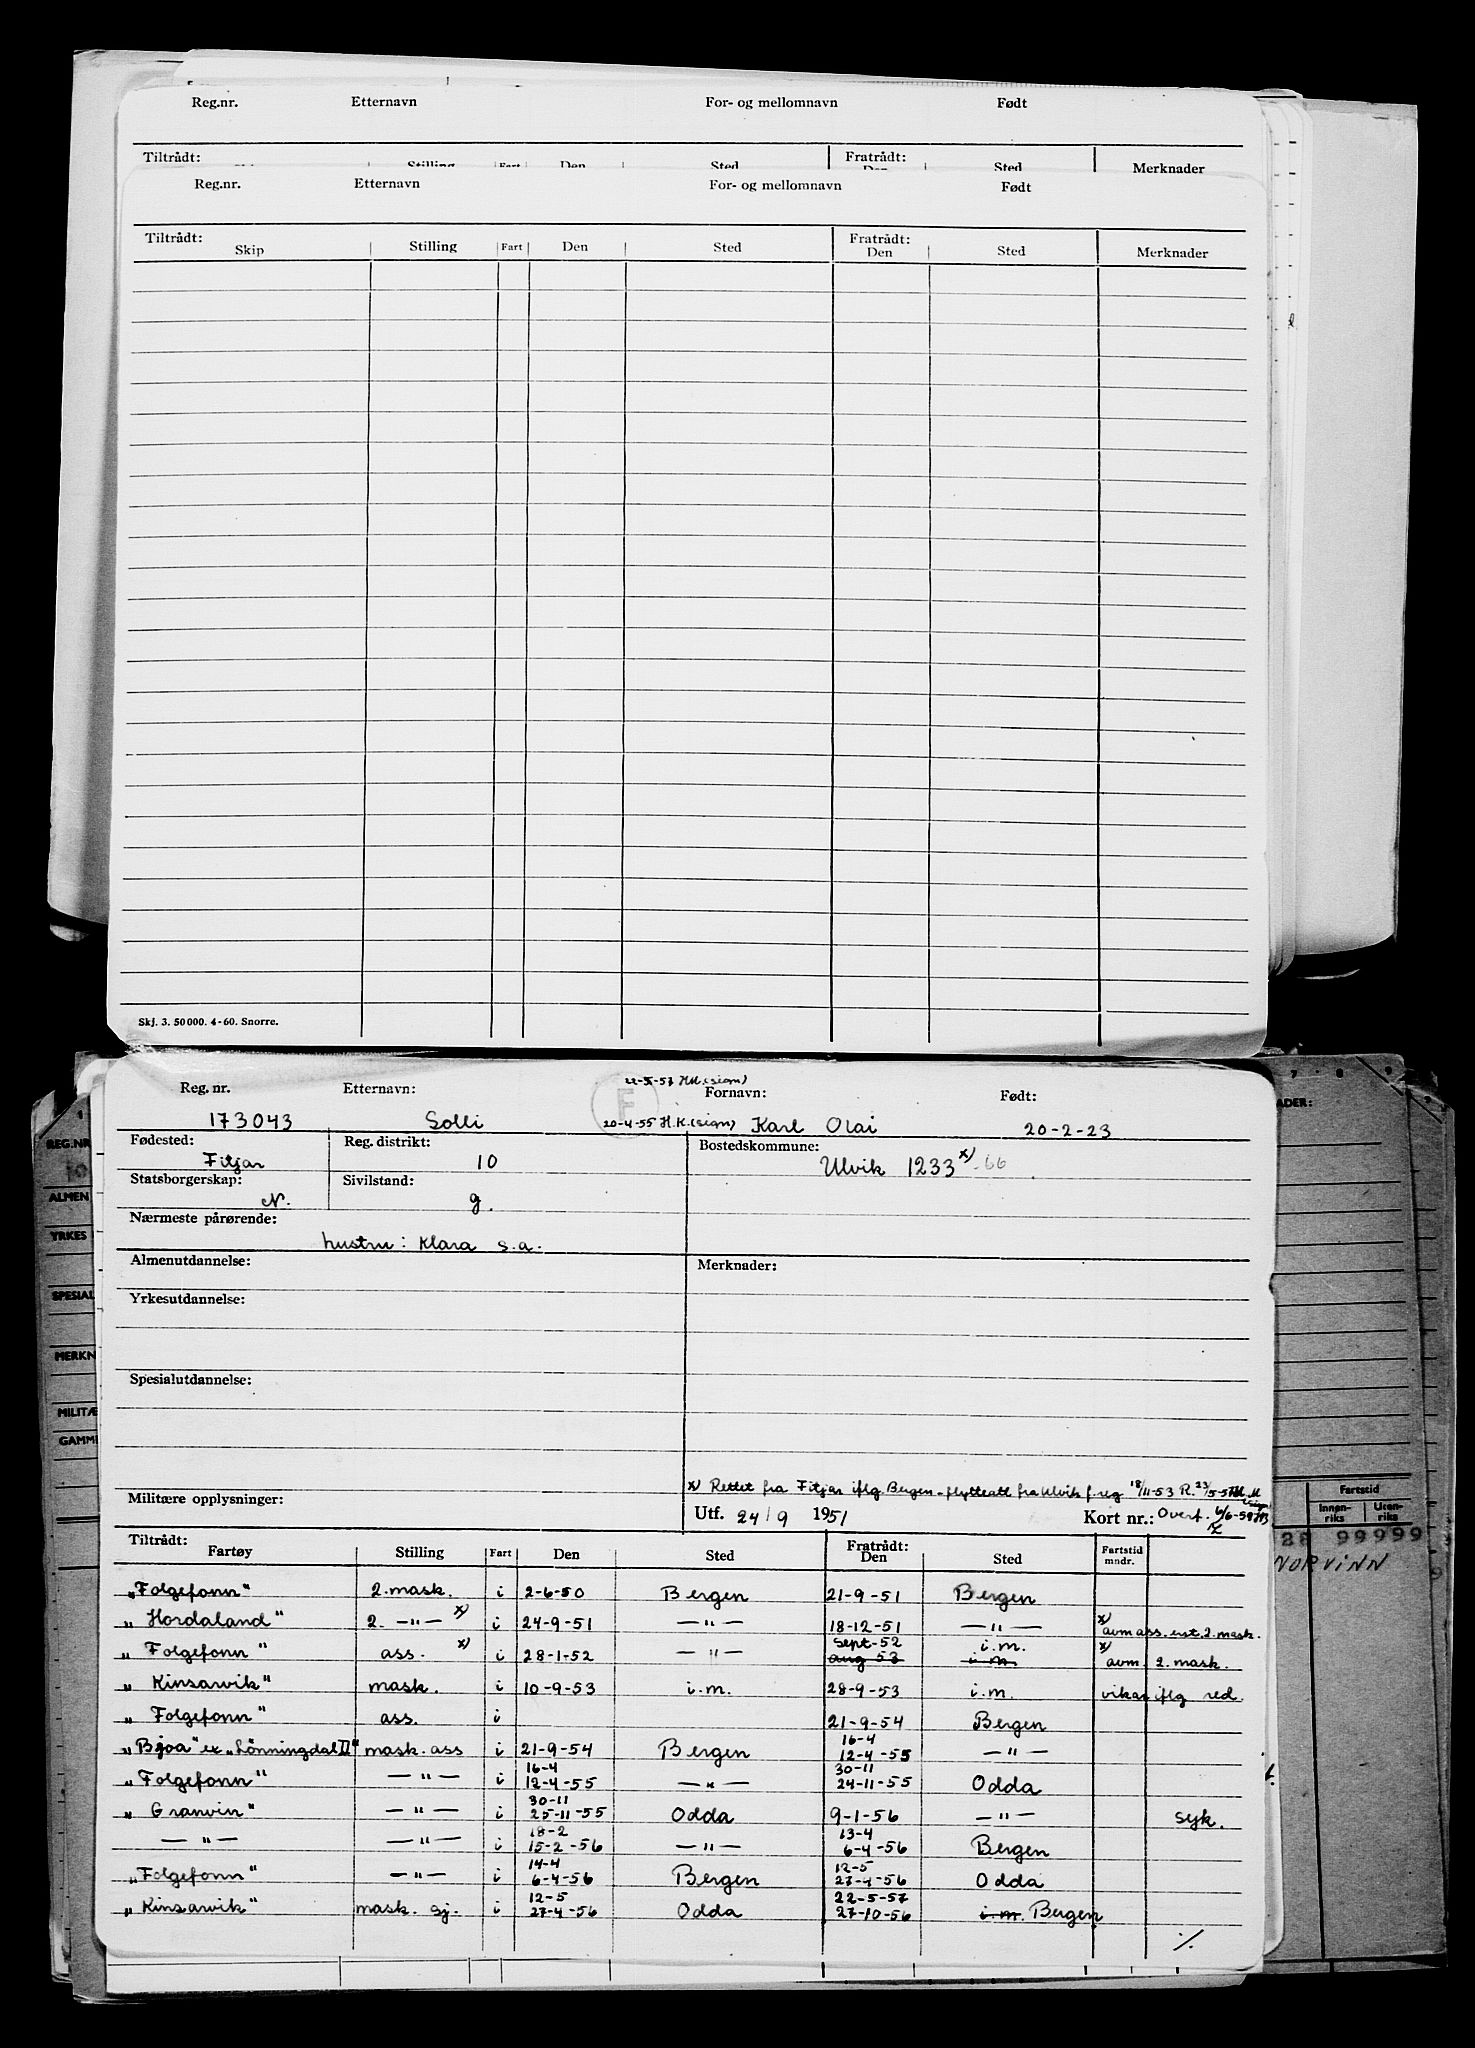 Reg.nr. Etternavn For- og mellomnavn Født
Tiltrådt: Stilling Fart Den Sted Fratrådt: Den Sted Merknader
Reg.nr. Etternavn For- og mellomnavn Født
Tiltrådt: Fratrådt:
Skip Stilling Fart Den Sted Den Sted Merknader
Skj. 3. 50000. 4-60. Snorre.
22-5-57 HM.(sign)
Reg. nr. Etternavn: F Fornavn: Født:
173043 Solli 20-4-55 H.K.(sign) Karl Olai 20-2-23
Fødested: Reg. distrikt: Bostedskommune:
Fitjar 10 Ulvik 1233 x) -66
Statsborgerskap: Sivilstand:
N. g.
Nærmeste pårørende:
hustru: Klara s.a.
Almenutdannelse: Merknader:
Yrkesutdannelse:
Spesialutdannelse:
x) Rettet fra Fitjar iflg Bergen - flytteatt fra Ulvik f.reg 18/11-53 R. 23/5-57
Militære opplysninger: Utf. 24/9 1951 Kort nr.: Overf. 6/6-58
Tiltrådt: Fratrådt: Fartstid
Fartøy Stilling Fart Den Sted Den Sted mndr.
"Folgefonn" 2. mask. i 2-6-50 Bergen 21-9-51 Bergen
"Hordaland" 2. —"— x) i 24-9-51 —"— 18-12-51 —"— x) avm ass. erst. 2. mask.
"Folgefonn" ass. x) i 28-1-52 —"— Sept-52 aug 53 i.m. i.m. x) avm. 2. mask.
"Kinsarvik" mask. i 10-9-53 i.m. 28-9-53 i.m. vikar iflg red.
"Folgefonn" ass. i 21-9-54 Bergen
"Bjoa" ex "Lönningdal II" mask. ass i 21-9-54 Bergen 16-4 12-4-55 —"—
"Folgefonn" —"— i 16-4 12-4-55 —"— 30-11 24-11-55 Odda
"Granvin" —"— i 30-11 25-11-55 Odda 9-1-56 —"— syk.
—"— —"— i 18-2 15-2-56 —"— 13-4 6-4-56 Bergen
"Folgefonn" —"— i 14-4 6-4-56 Bergen 12-5 27-4-56 Odda
"Kinsarvik" mask. sj. i 12-5 27-4-56 Odda 22-5-57 27-10-56 i.m. Bergen
./.
REG.NR
ALMEN
YRKES
SPESIAL
MERKN
MILITÆ
GAMM
7 8 9
ADER:
Fartstid
Innenriks Utenriks
28 99999
NORVINN